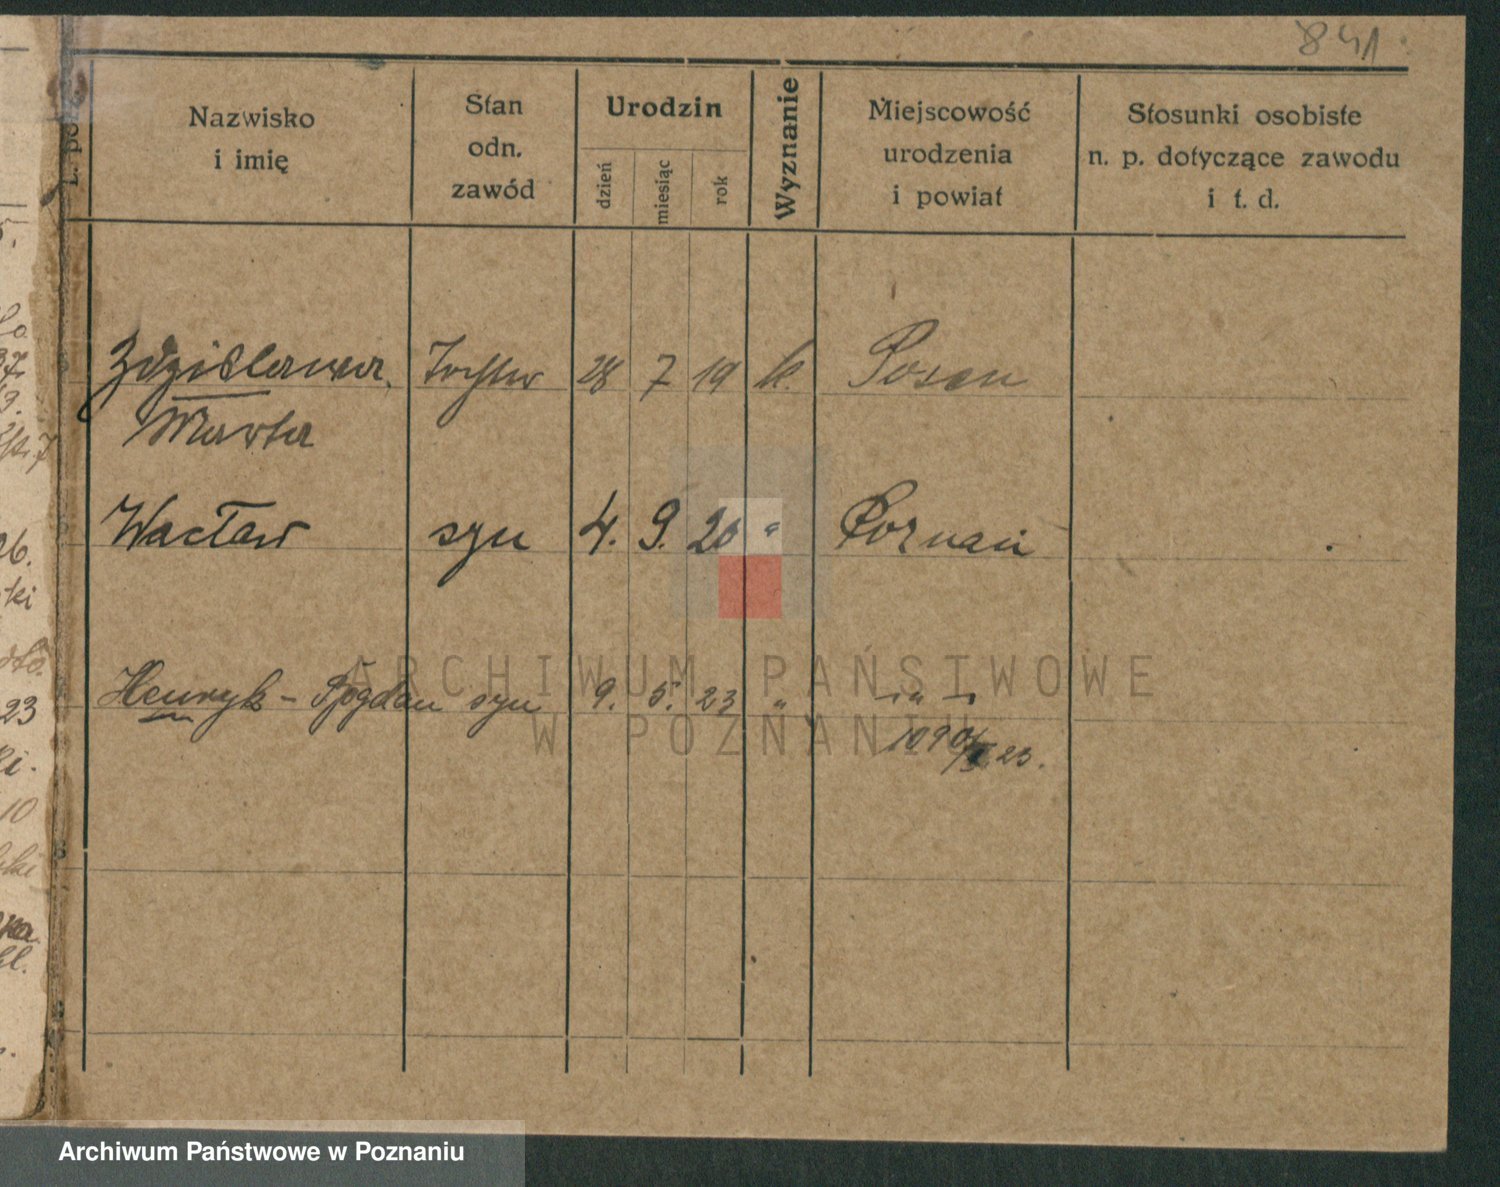 841.
L. poz.
Nazwisko
i imię
Stan
odn.
zawód
Urodzin
dzień
miesiąc
rok
Wyznanie
Miejscowość
urodzenia
i powiat
Stosunki osobiste
n. p. dotyczące zawodu
i t. d.
Zdzislawa. Tochter 28 7 19 k. Posen
Marta
Wacław syn 4. 9. 20 " Poznań
Henryk - Bogdan syn 9. 5. 23 " — " —
23.
ARCHIWUM PAŃSTWOWE
W POZNANIU
Archiwum Państwowe w Poznaniu